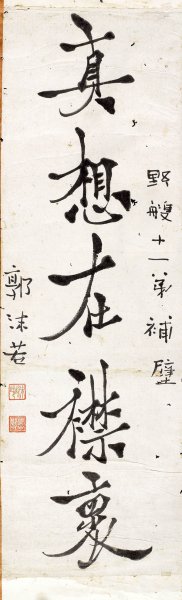 野艇十一弟補壁
真想在襟裏
郭沫若